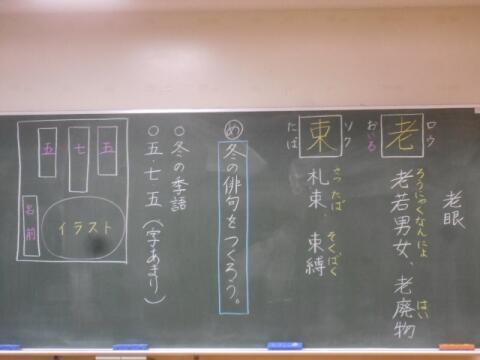 老眼
ロウ
老
おいる
老若男女、老廃物
ろうにゃくなんにょ
はい
ソク
束
たば
札束、束縛
さつたば
そくばく
め 冬の俳句をつくろう。
○冬の季語
○五・七・五（字あまり）
五
七
五
イラスト
名前